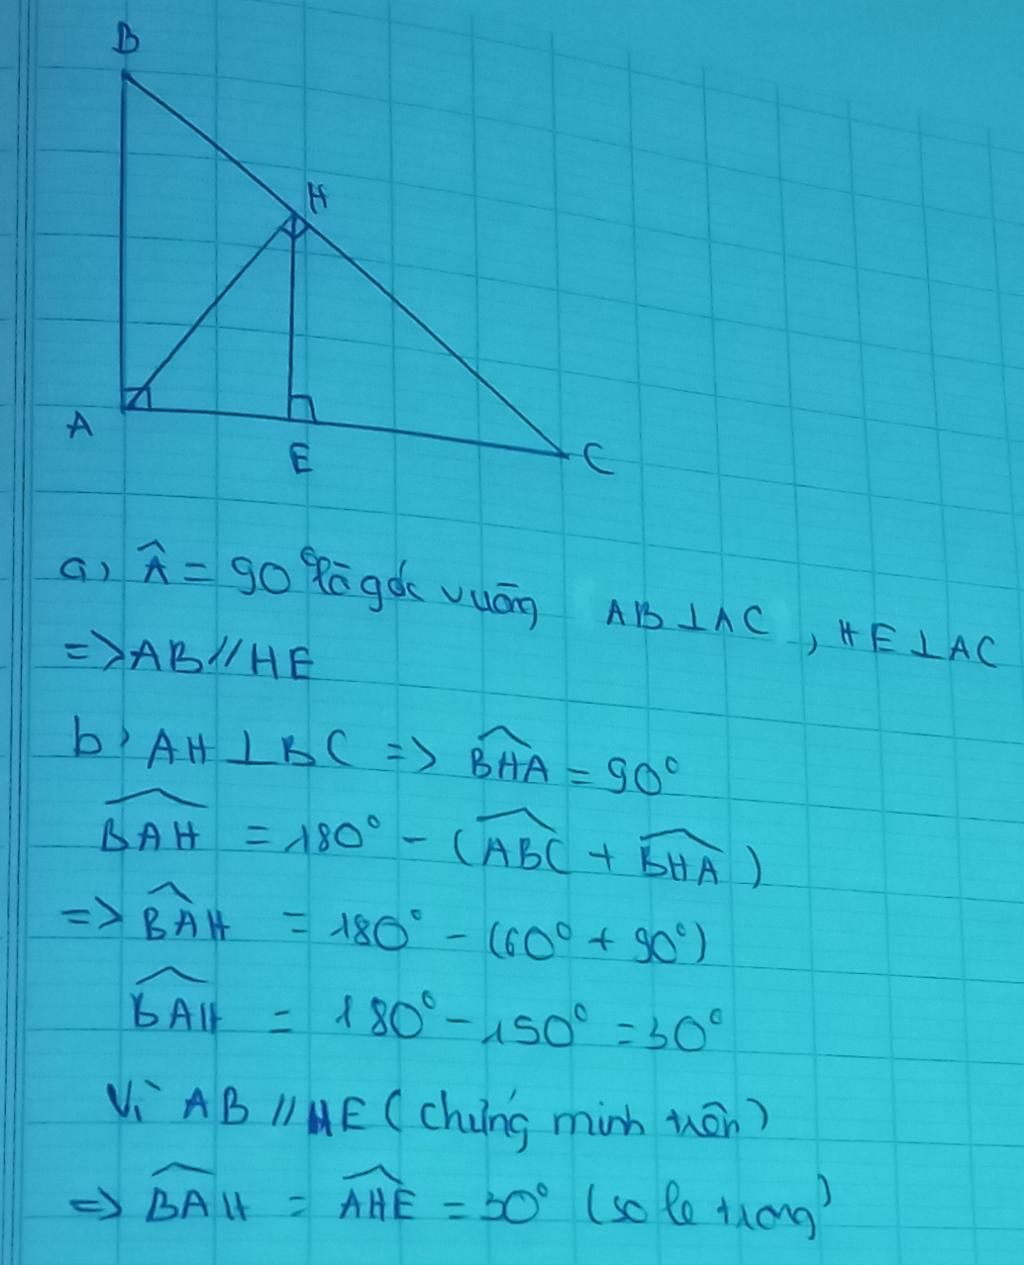 B
H
A
E
C
a) Â = 90° là góc vuông AB ⊥ AC, HE ⊥ AC
=> AB // HE
b) AH ⊥ BC => \widehat{BHA} = 90°
\widehat{BAH} = 180° - (\widehat{ABC} + \widehat{BHA})
=> \widehat{BAH} = 180° - (60° + 90°)
\widehat{BAH} = 180° - 150° = 30°
Vì AB // HE (chứng minh trên)
=> \widehat{BAH} = \widehat{AHE} = 30° (so le trong)